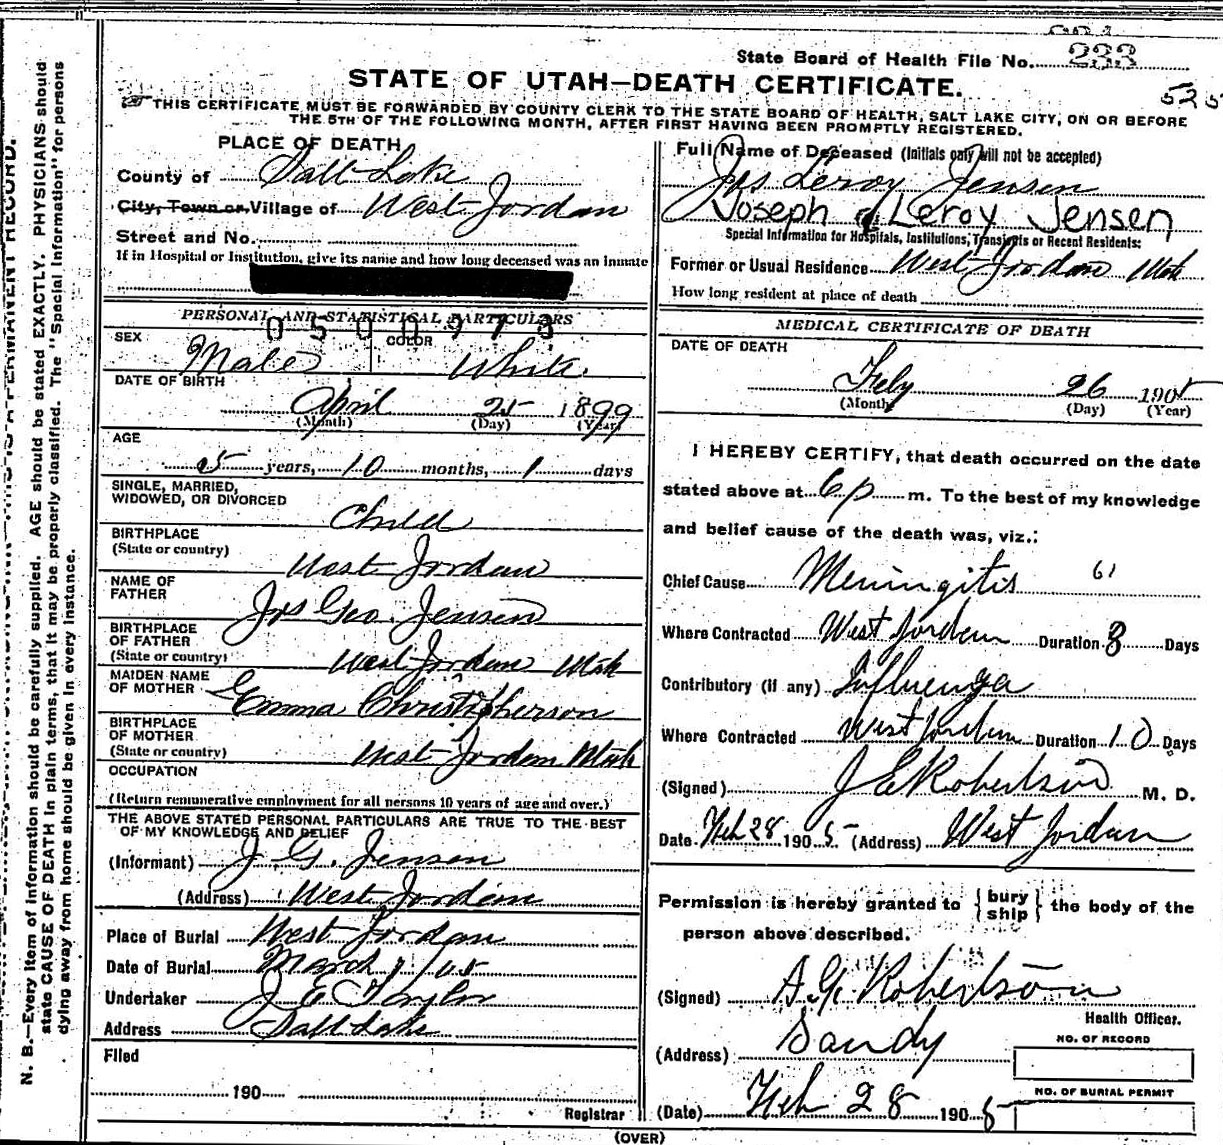 State Board of Health File No. 233
525
STATE OF UTAH—DEATH CERTIFICATE.
THIS CERTIFICATE MUST BE FORWARDED BY COUNTY CLERK TO THE STATE BOARD OF HEALTH, SALT LAKE CITY, ON OR BEFORE
THE 5TH OF THE FOLLOWING MONTH, AFTER FIRST HAVING BEEN PROMPTLY REGISTERED.
PLACE OF DEATH
County of Salt Lake
City, Town or Village of West Jordan
Street and No.
If in Hospital or Institution, give its name and how long deceased was an inmate
PERSONAL AND STATISTICAL PARTICULARS
0500973
SEX Male COLOR White
DATE OF BIRTH
April 25 1899
(Month) (Day) (Year)
AGE
5 years, 10 months, 1 days
SINGLE, MARRIED,
WIDOWED, OR DIVORCED
Child
BIRTHPLACE
(State or country)
West Jordan
NAME OF
FATHER
Jos Geo. Jensen
BIRTHPLACE
OF FATHER
(State or country)
West Jordan Utah
MAIDEN NAME
OF MOTHER
Emma Christopherson
BIRTHPLACE
OF MOTHER
(State or country)
West Jordan Utah
OCCUPATION
(Return remunerative employment for all persons 10 years of age and over.)
THE ABOVE STATED PERSONAL PARTICULARS ARE TRUE TO THE BEST
OF MY KNOWLEDGE AND BELIEF
(Informant) J. G. Jensen
(Address) West Jordan
Place of Burial West Jordan
Date of Burial March 1/05
Undertaker J E Taylor
Address Salt Lake
Filed
190
Registrar
Full Name of Deceased (Initials only will not be accepted)
Jos Leroy Jensen
Joseph Leroy Jensen
Special Information for Hospitals, Institutions, Transients or Recent Residents:
Former or Usual Residence West Jordan Utah
How long resident at place of death
MEDICAL CERTIFICATE OF DEATH
DATE OF DEATH
Feby 26 1905
(Month) (Day) (Year)
I HEREBY CERTIFY, that death occurred on the date
stated above at 6 p m. To the best of my knowledge
and belief cause of the death was, viz.:
Chief Cause Meningitis 61
Where Contracted West Jordan Duration 8 Days
Contributory (if any) Influenza
Where Contracted West Jordan Duration 10 Days
(Signed) J E Robertson M. D.
Date Feb 28 1905 (Address) West Jordan
Permission is hereby granted to {bury
ship} the body of the
person above described.
(Signed) A. G. Robertson
Health Officer.
(Address) Sandy
NO. OF RECORD
NO. OF BURIAL PERMIT
(Date) Feb 28 1905
(OVER)
N. B.—Every item of information should be carefully supplied. AGE should be stated EXACTLY. PHYSICIANS should
state CAUSE OF DEATH in plain terms, that it may be properly classified. The "Special Information" for persons
dying away from home should be given in every instance.